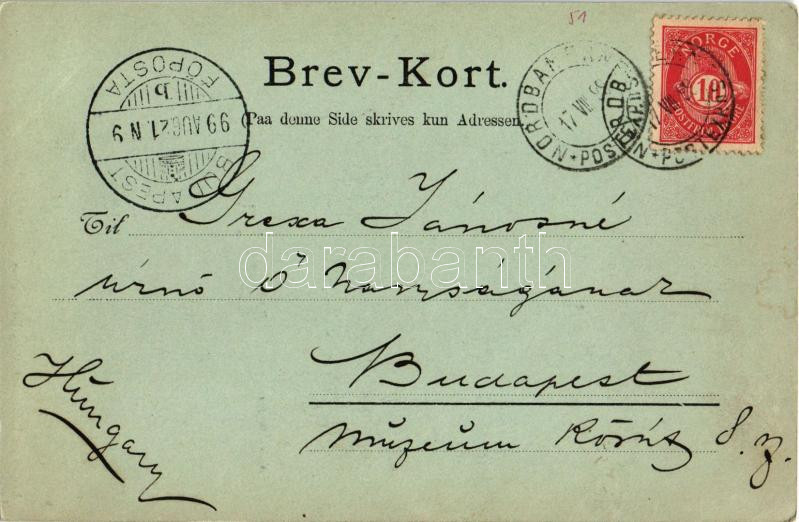 51
Brev-Kort.
(Paa denne Side skrives kun Adressen.
NORGE
10
BUDAPEST
99 AUG 21. N 9
b
FŐPOSTA
17 VIII
Til Grexa Jánosné
úrnő Ő Nagyságának
Budapest
Múzeum Körút 8. sz.
Hungary
darabanth